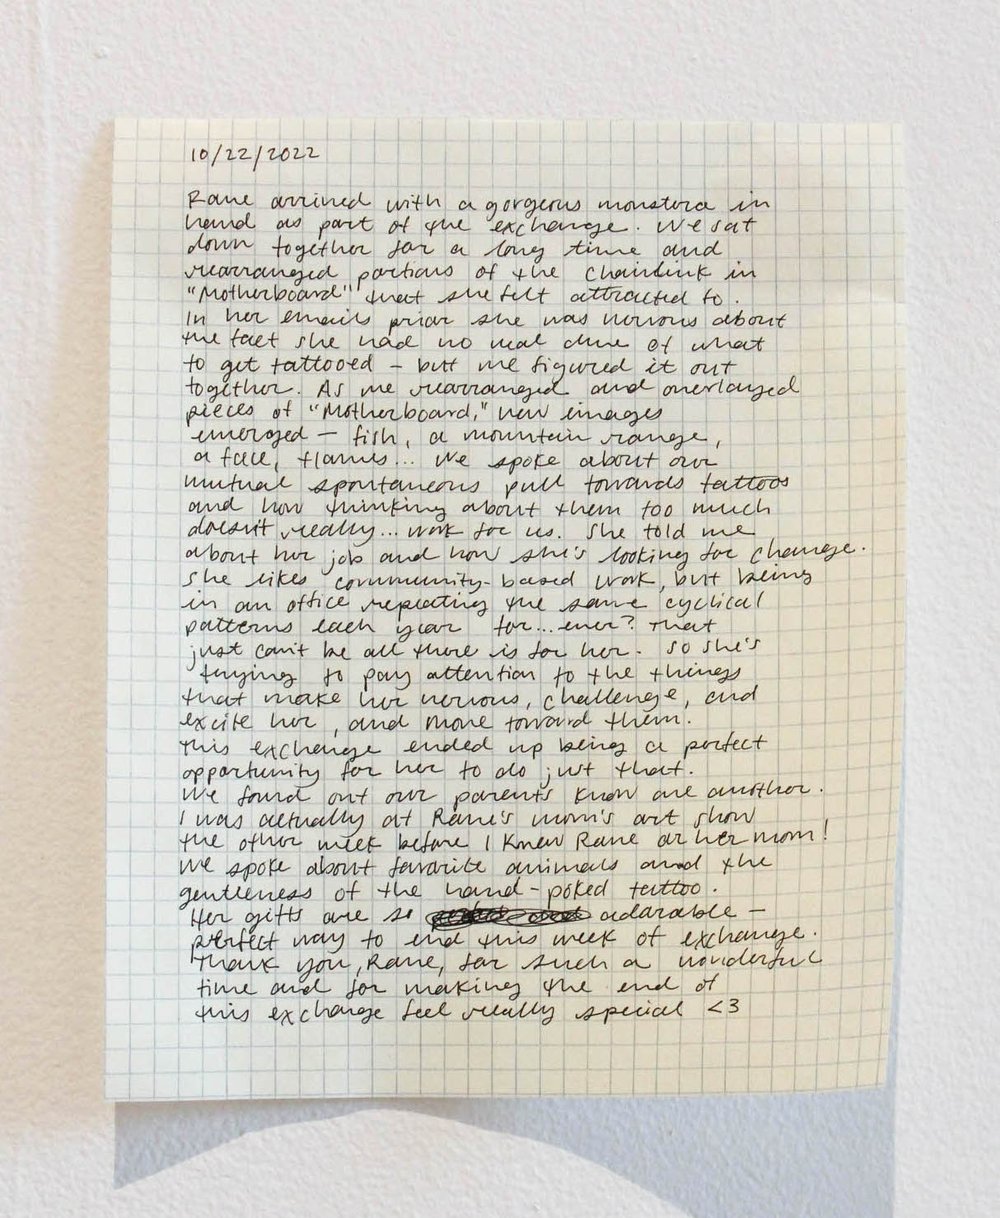 10/22/2022
Rane arrived with a gorgeous monstera in
hand as part of the exchange. We sat
down together for a long time and
rearranged portions of the chainlink in
"Motherboard" that she felt attracted to.
In her emails prior she was nervous about
the fact she had no real clue of what
to get tattooed – but we figured it out
together. As we rearranged and overlayed
pieces of "Motherboard," new images
emerged – fish, a mountain range,
a face, flames... We spoke about our
mutual spontaneous pull towards tattoos
and how thinking about them too much
doesn't really... work for us. She told me
about her job and how she's looking for change.
She likes community-based work, but being
in an office repeating the same cyclical
patterns each year for... ever? That
just can't be all there is for her. So she's
trying to pay attention to the things
that make her nervous, challenge, and
excite her, and move toward them.
This exchange ended up being a perfect
opportunity for her to do just that.
We found out our parents know one another.
I was actually at Rane's mom's art show
the other week before I knew Rane or her mom!
We spoke about favorite animals and the
gentleness of the hand-poked tattoo.
Her gifts are so adorable –
perfect way to end this week of exchange.
Thank you, Rane, for such a wonderful
time and for making the end of
this exchange feel really special <3